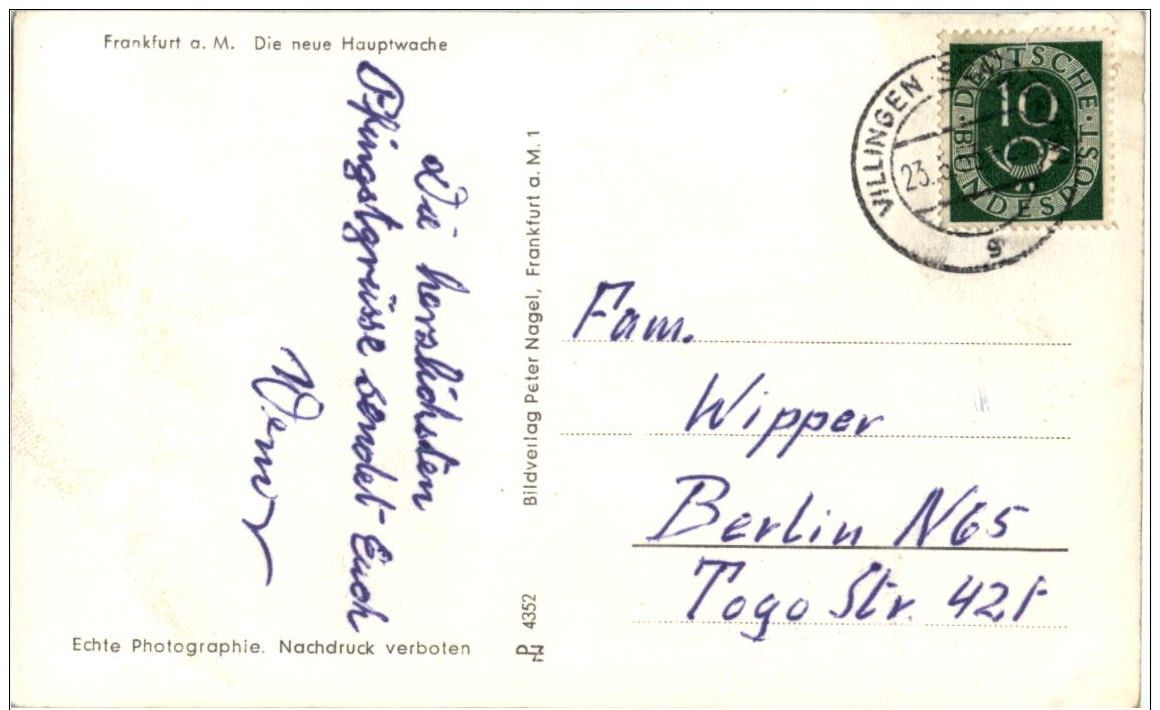 Frankfurt a. M. Die neue Hauptwache
Die herzlichsten
Pfingstgrüsse sendet Euch
Werner
Echte Photographie. Nachdruck verboten
Bildverlag Peter Nagel, Frankfurt a. M. 1
4352
DEUTSCHE BUNDESPOST
10
VILLINGEN
23.
Fam.
Wipper
Berlin N65
Togo Str. 42f